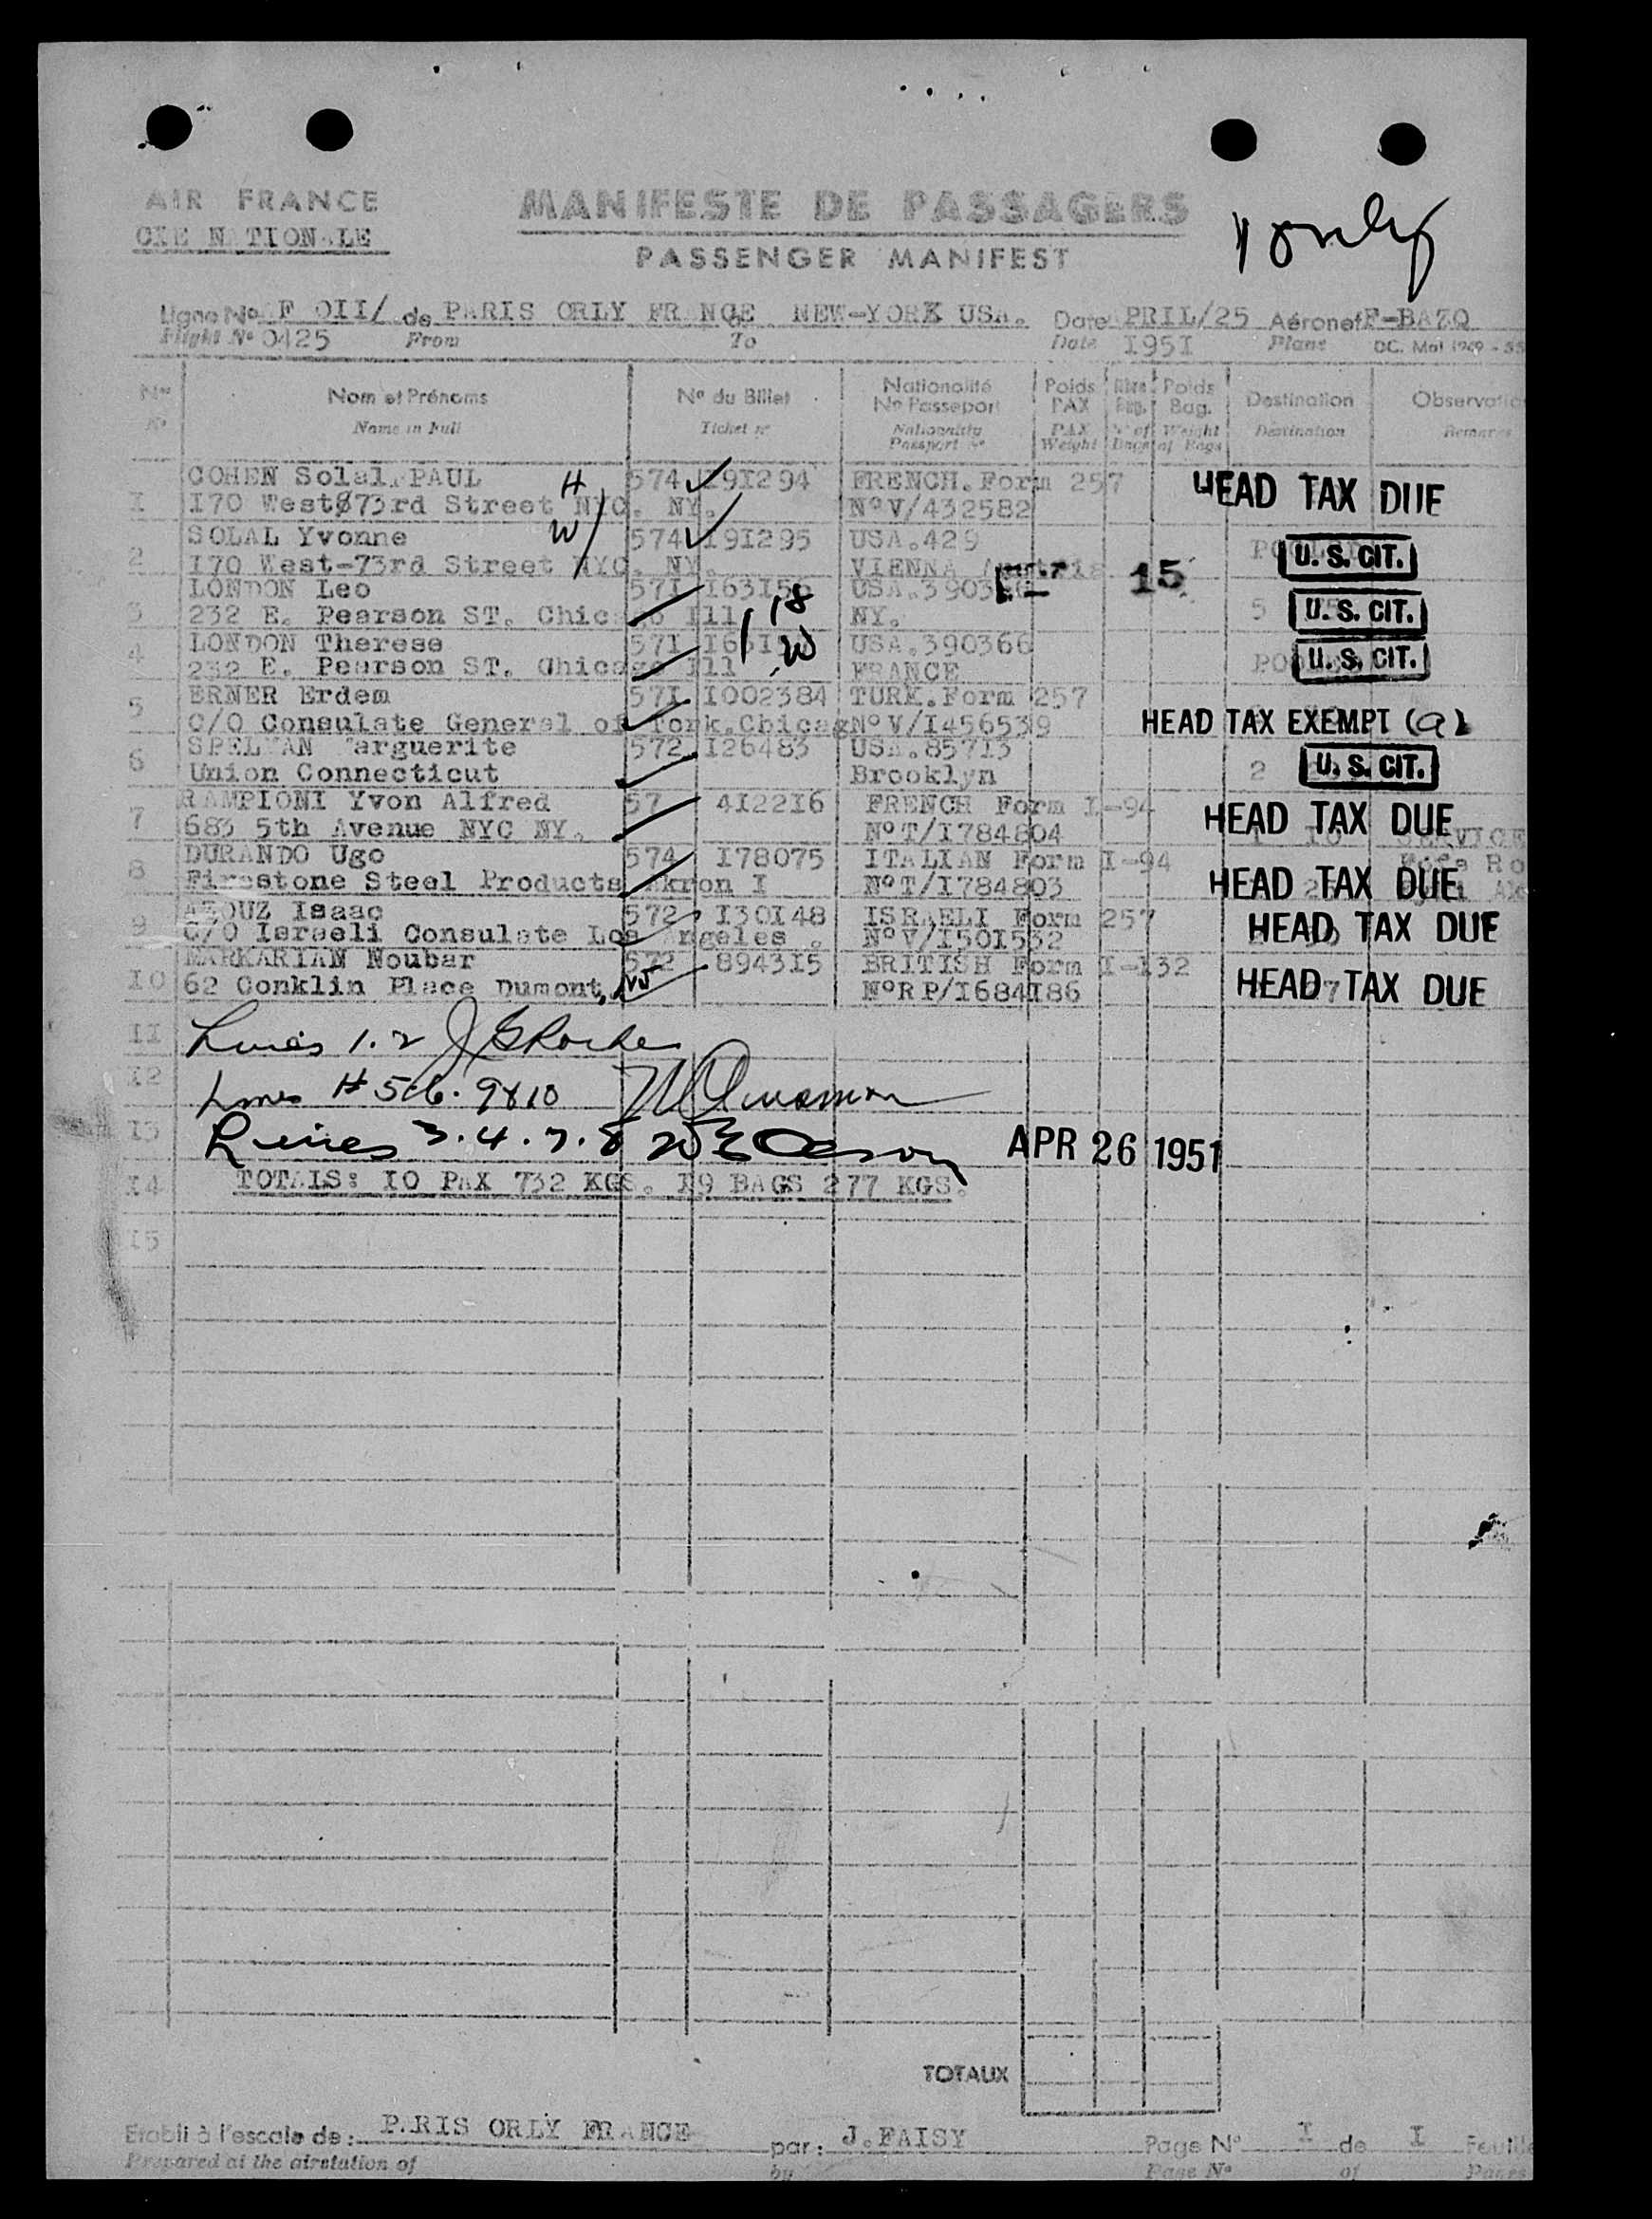 AIR FRANCE
CIE NATIONALE
MANIFESTE DE PASSAGERS
PASSENGER MANIFEST
1 only
Ligne No AF OII/ de PARIS ORLY FRANCE à NEW-YORK USA. Date APRIL/25 Aéronef F-BAZQ
Flight No 0425 From To Date I95I Plane OC. Mol 1949 - 55
Nos Nom et Prénoms No du Billet Nationalité No Passeport Poids PAX Nbre Bag. Poids Bag. Destination Observatio
No Name in Full Ticket no Nationality Passport No PAX Weight No of Bags Weight of Bags Destination Remar
COHEN Solal.PAUL H 574 I9I294 FRENCH.Form 257 HEAD TAX DUE
I I70 West 73rd Street NYC. NY. NoV/432582
SOLAL Yvonne W 574 I9I295 USA.429 U. S. CIT.
2 I70 West-73rd Street NYC. NY. VIENNA Austria 15
LONDON Leo 57I I63I56 USA. U. S. CIT.
3 232 E. Pearson ST. Chicago Ill NY. 5
LONDON Therese 57I W USA.390366 U. S. CIT.
4 232 E. Pearson ST. Chicago Ill FRANCE
ERNER Erdem 57I I002384 TURK.Form 257
5 C/O Consulate General of Tork.Chicag NoV/I456539 HEAD TAX EXEMPT (a)
SPELMAN Marguerite 572 I26483 USA.857I3 U. S. CIT.
6 Union Connecticut Brooklyn 2
RAMPIONI Yvon Alfred 57 4I22I6 FRENCH Form I-94 HEAD TAX DUE
7 683 5th Avenue NYC NY. NoT/I784804 SERVICE
DURANDO Ugo 574 I78075 ITALIAN Form I-94 HEAD TAX DUE
8 Firestone Steel Products Akron I NoT/I784803
AZOUZ Isaac 572 I30I48 ISRAELI Form 257 HEAD TAX DUE
9 C/O Israeli Consulate Los Angeles . NoV/I50I532
MARKARIAN Noubar 572 8943I5 BRITISH Form I-I32 HEAD TAX DUE
IO 62 Conklin Place Dumont, NJ NoRP/I684I86
II Lines 1.2
I2 Lines # 5+6. 9+10
I3 Lines 3.4.7.8 APR 26 1951
I4 TOTALS: IO PAX 732 KGS. I9 BAGS 277 KGS.
I5
TOTAUX
Etabli à l'escale de: PARIS ORLY FRANCE par: J.FAISY Page No I de I Feuille
Prepared at the airstation of by Page No of Pages